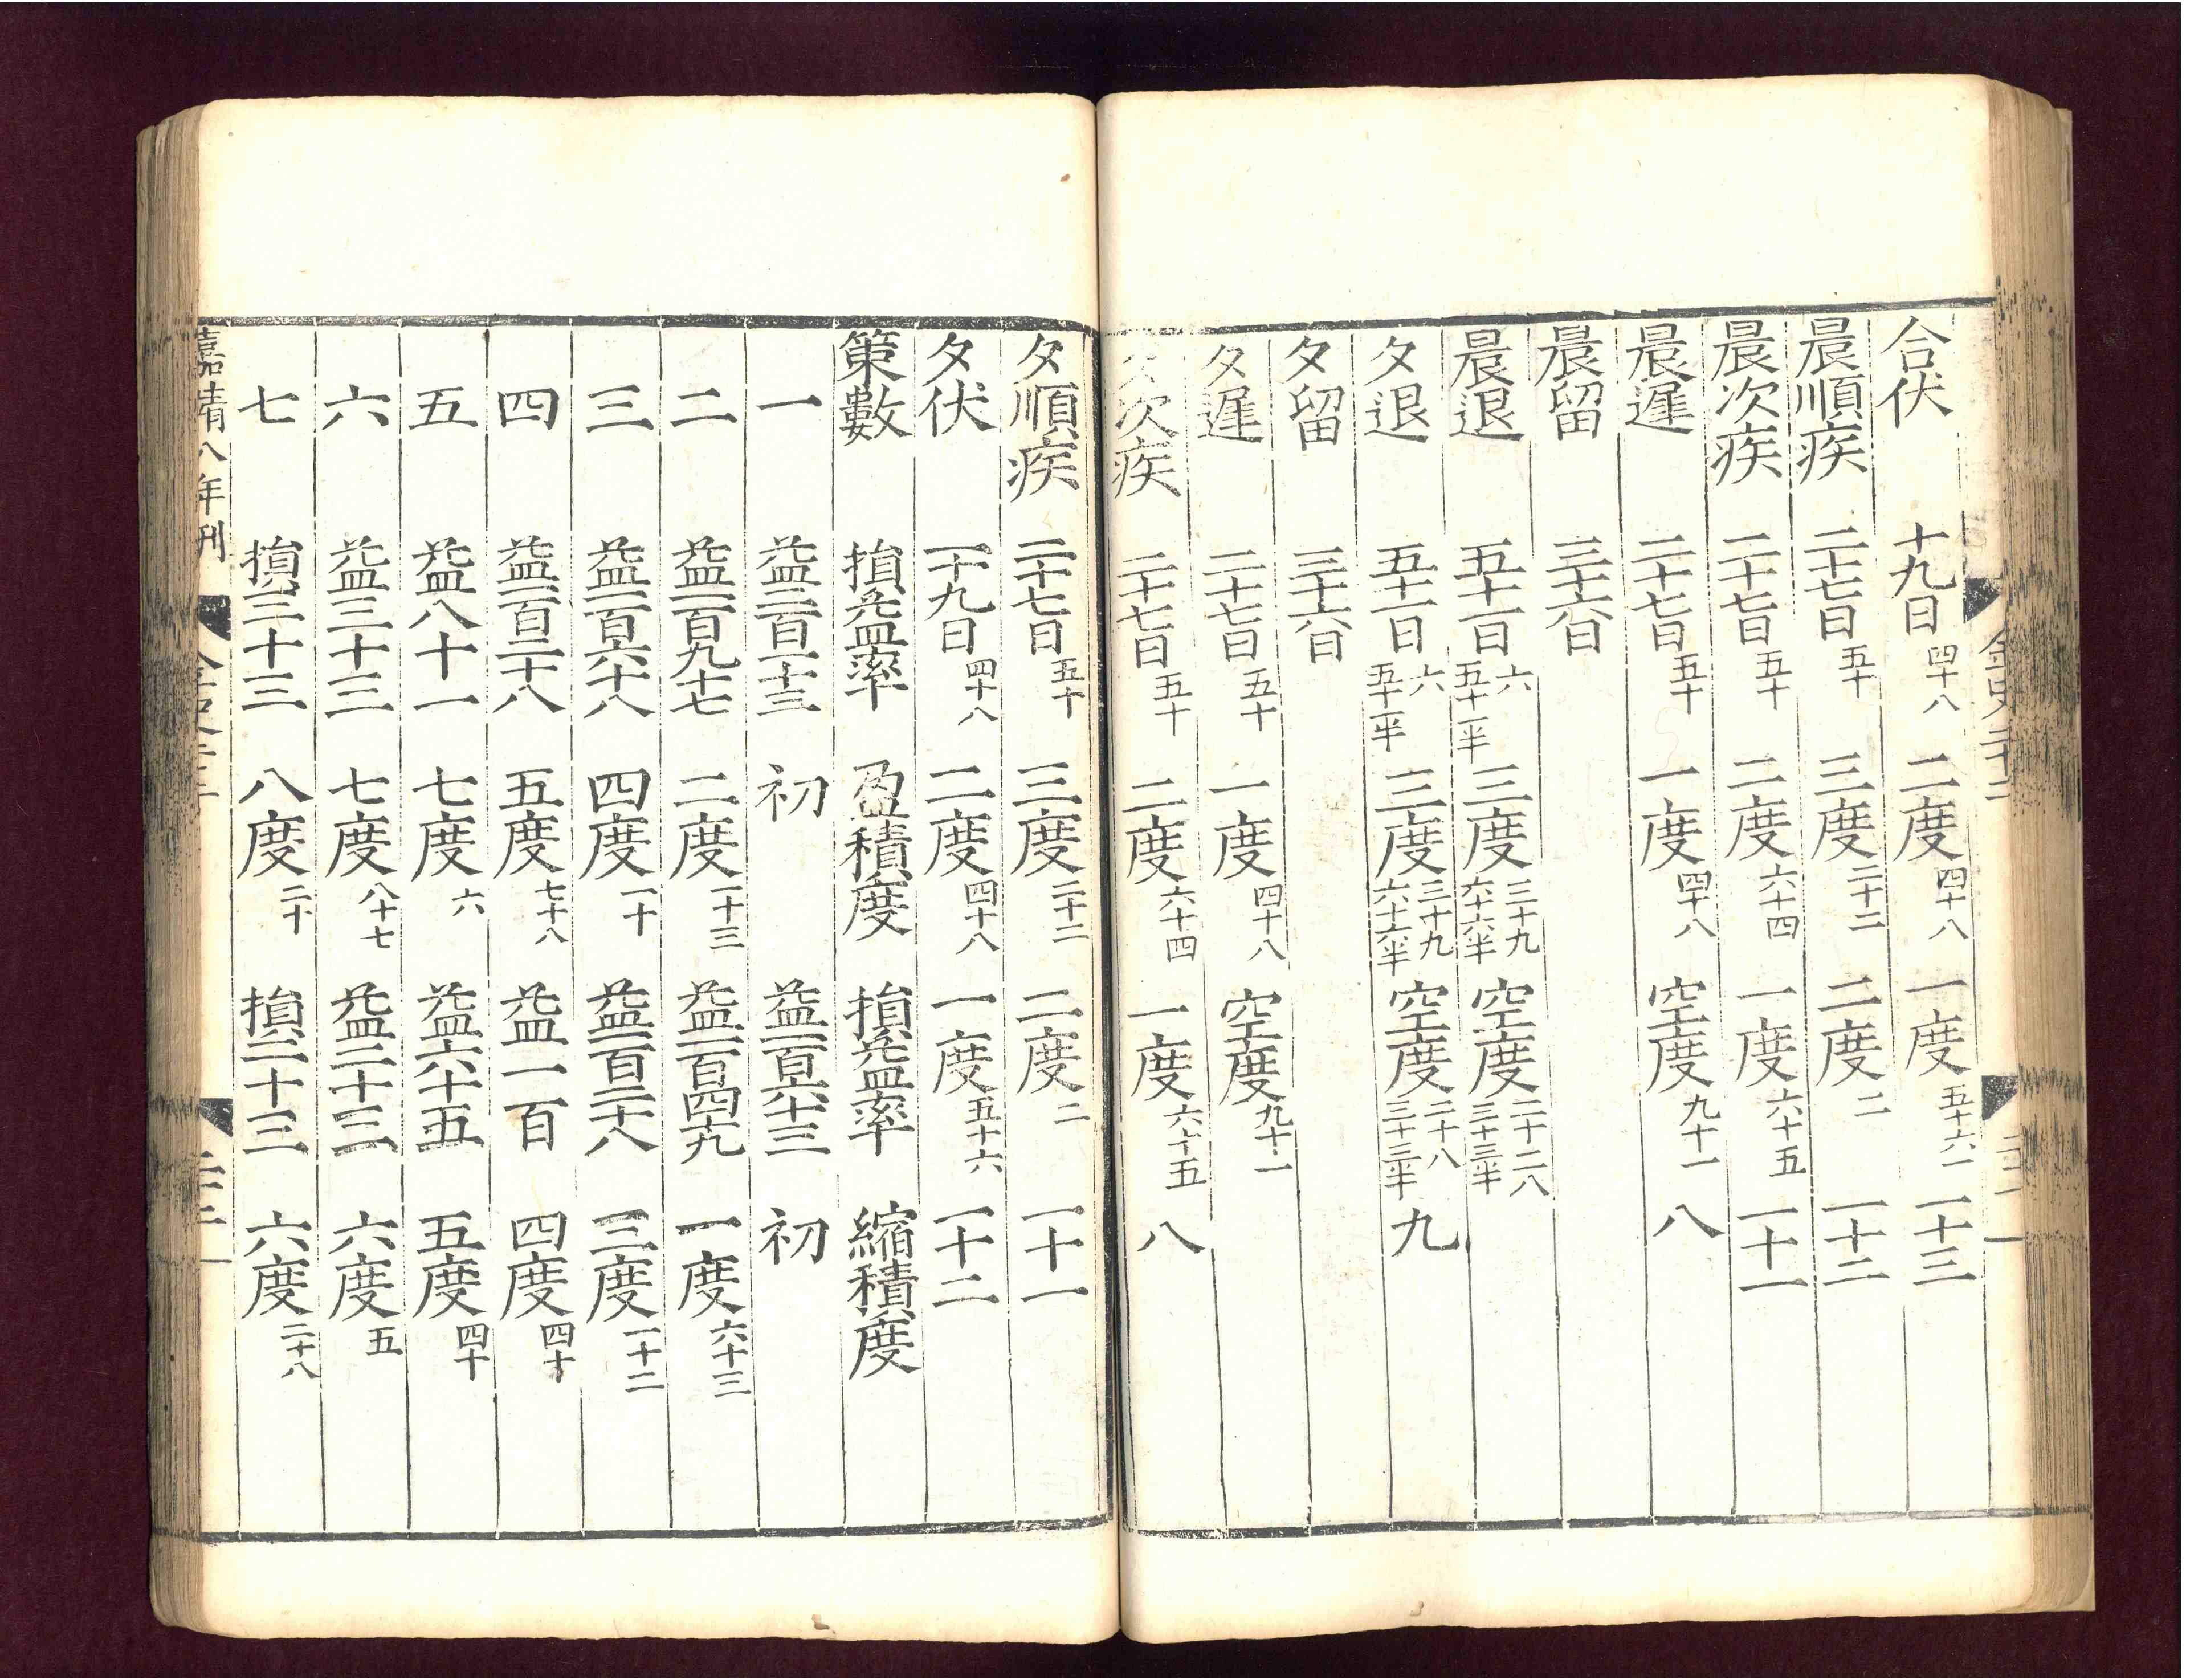 合伏 十九日四十八 二度四十八 一度五十六 一十三
晨順疾 二十七日五十 三度二十二 二度二 一十二
晨次疾 二十七日五十 二度六十四 一度六十五 一十一
晨遲 二十七日五十 一度四十八 空度九十一 八
晨留 三十六日
晨退 五十一日六五十一半 三度三十九六十六半 空度二十八三十三半
夕退 五十一日六五十一半 三度三十九六十六半 空度二十八三十三半 九
夕留 三十六日
夕遲 二十七日五十 一度四十八 空度九十一
夕次疾 二十七日五十 二度六十四 一度六十五 八
夕順疾 二十七日五十 三度二十二 二度二 一十一
夕伏 一十九日四十八 二度四十八 一度五十六 一十二
策數 損益率 盈積度 損益率 縮積度
一 益二百一十三 初 益一百六十三 初
二 益一百九十七 二度一十三 益一百四十九 一度六十三
三 益一百六十八 四度一十 益一百二十八 三度一十二
四 益一百二十八 五度七十八 益一百 四度四十
五 益八十一 七度六 益六十五 五度四十
六 益三十三 七度八十七 益二十三 六度五
七 損三十三 八度二十 損二十三 六度二十八
嘉靖八年刊